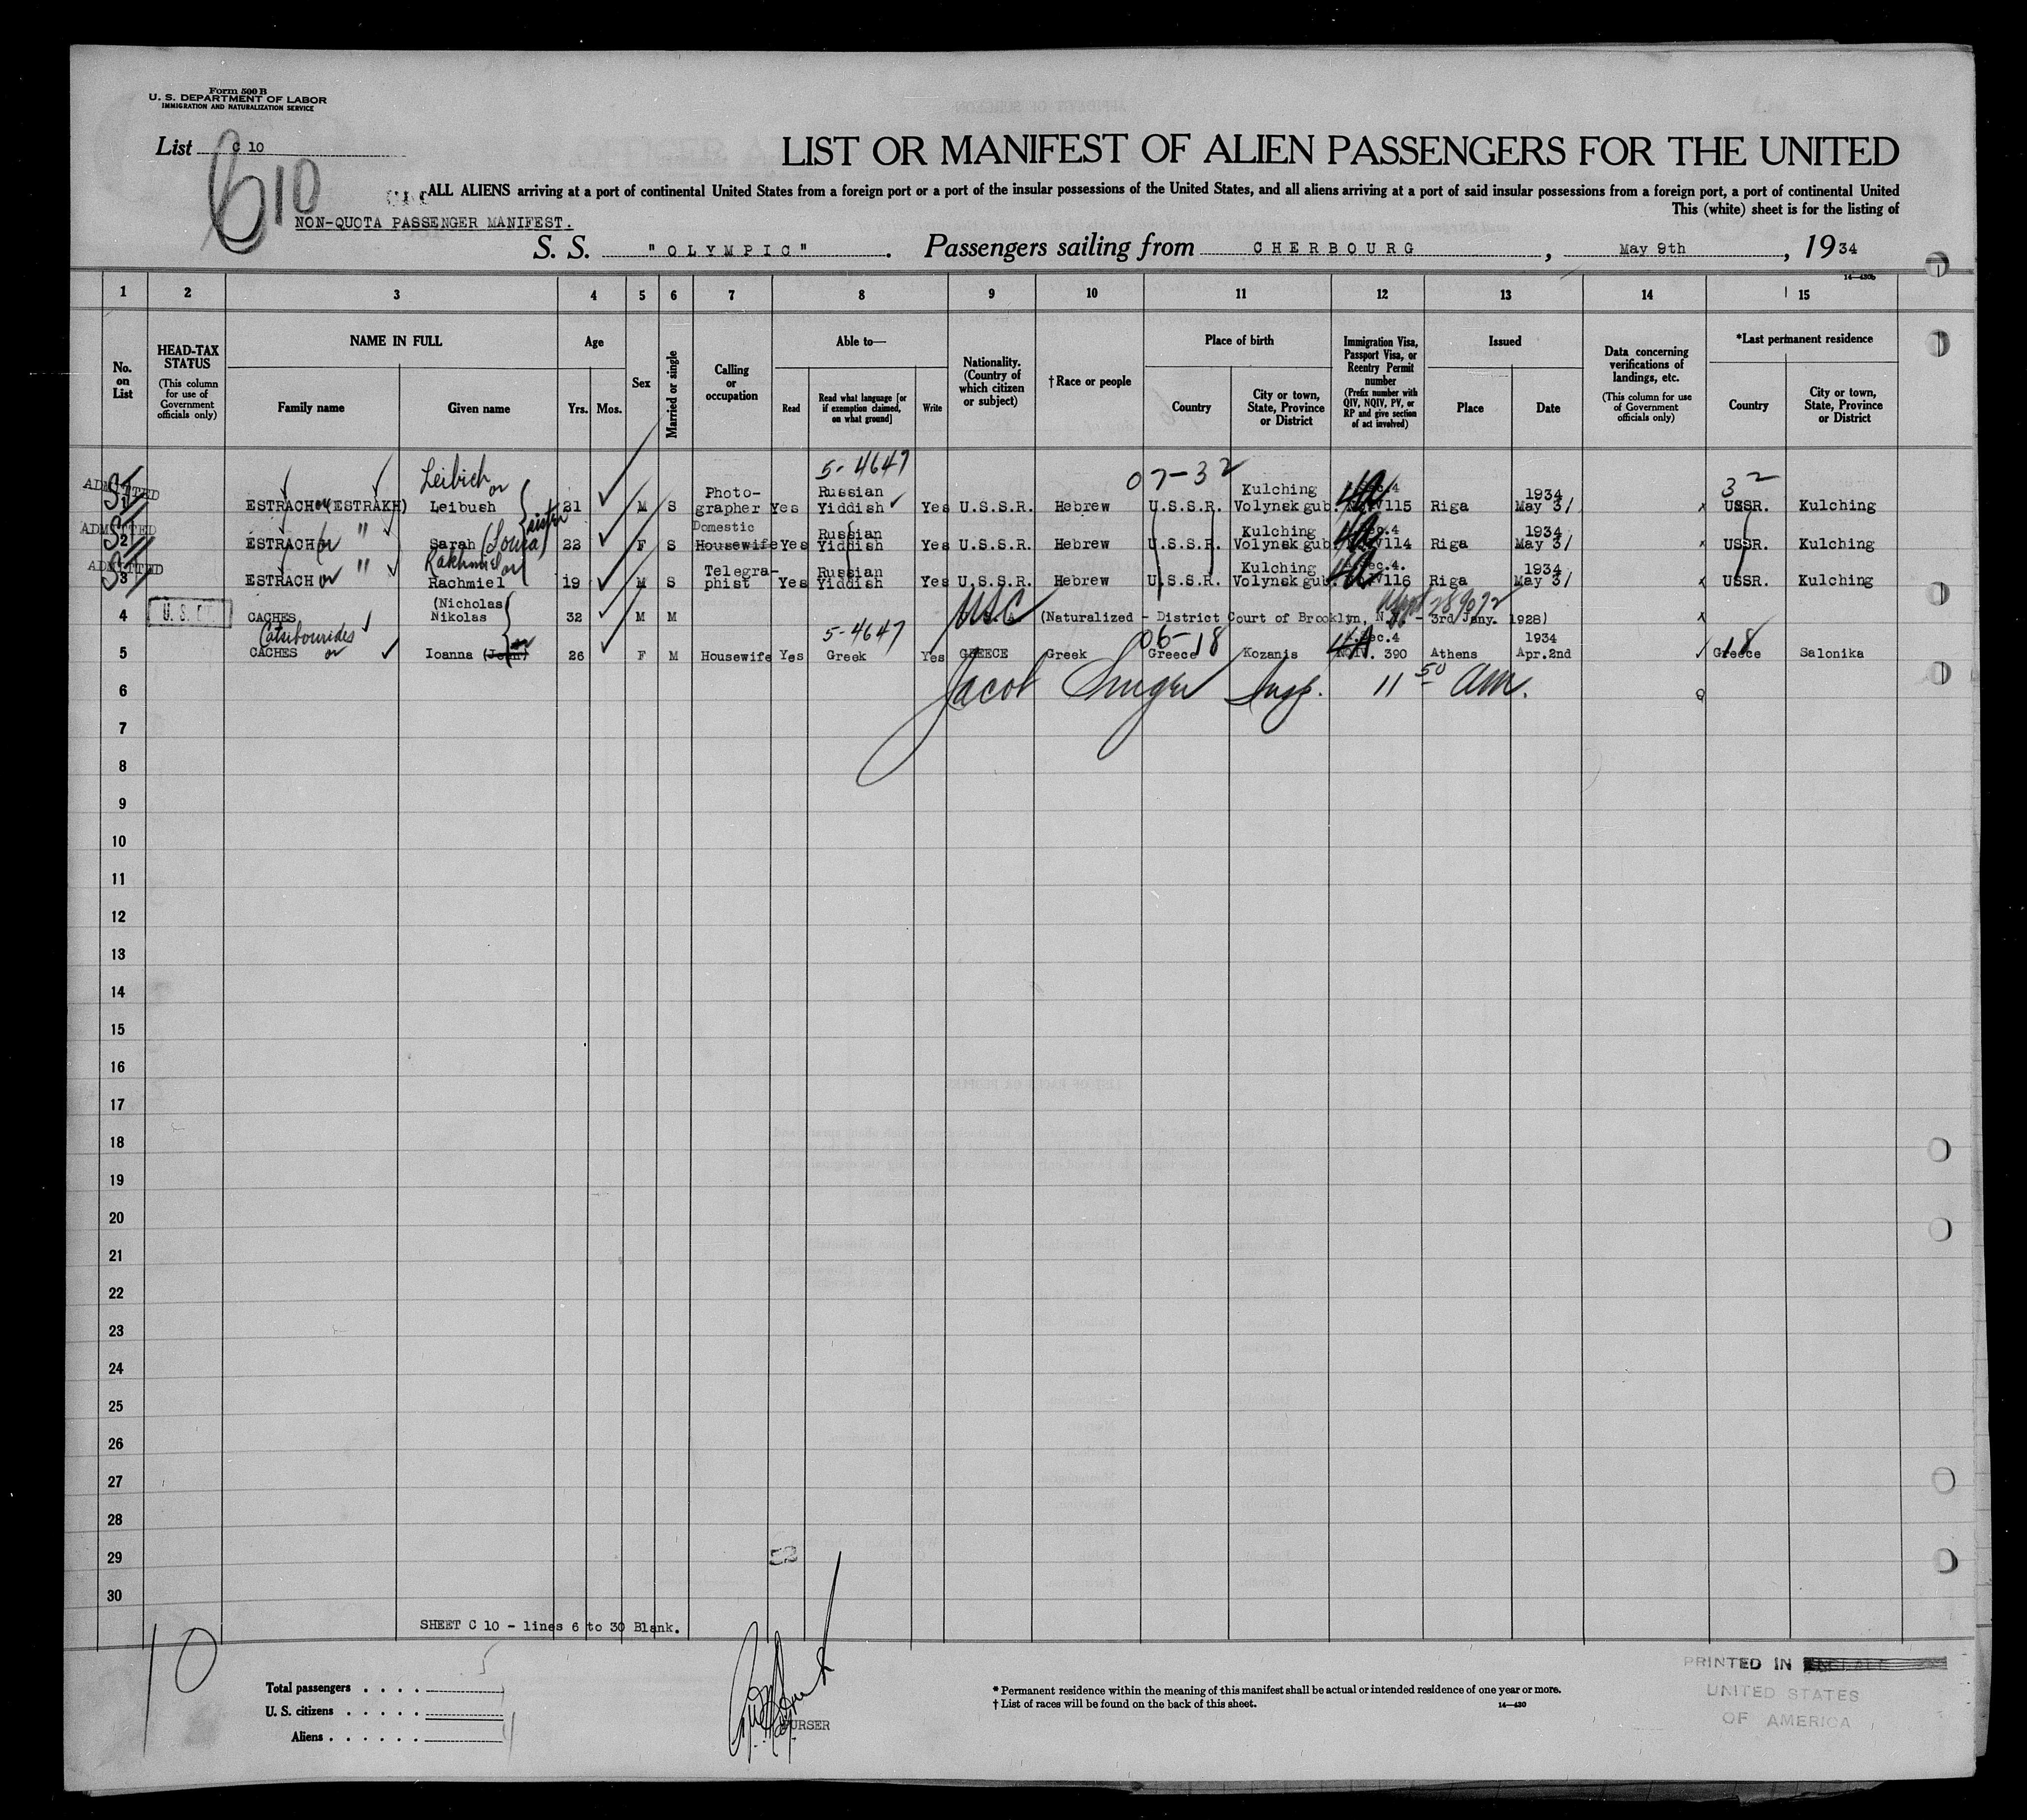 Form 500 B
U. S. DEPARTMENT OF LABOR
IMMIGRATION AND NATURALIZATION SERVICE
List C 10
10
LIST OR MANIFEST OF ALIEN PASSENGERS FOR THE UNITED
ALL ALIENS arriving at a port of continental United States from a foreign port or a port of the insular possessions of the United States, and all aliens arriving at a port of said insular possessions from a foreign port, a port of continental United
This (white) sheet is for the listing of
NON-QUOTA PASSENGER MANIFEST.
S. S. "OLYMPIC". Passengers sailing from CHERBOURG, May 9th, 1934
14—430b
1 2 3 4 5 6 7 8 9 10 11 12 13 14 15
No. on List
HEAD-TAX STATUS
(This column for use of Government officials only)
NAME IN FULL
Family name
Given name
Age
Yrs. Mos.
Sex
Married or single
Calling or occupation
Able to—
Read
Read what language [or if exemption claimed, on what ground]
Write
Nationality. (Country of which citizen or subject)
† Race or people
Place of birth
Country
City or town, State, Province or District
Immigration Visa, Passport Visa, or Reentry Permit number
(Prefix number with QIV, NQIV, PV, or RP and give section of act involved)
Issued
Place
Date
Data concerning verifications of landings, etc.
(This column for use of Government officials only)
*Last permanent residence
Country
City or town, State, Province or District
Leibich or 5-4647 07-32 32
ADMITTED 1 ESTRACH or (ESTRAKH) Leibush 21 M S Photo-grapher Yes Russian Yiddish Yes U.S.S.R. Hebrew U.S.S.R. Kulching Volynsk gub. Sec.4 115 Riga 1934 May 3/ USSR. Kulching
ADMITTED 2 ESTRACH or " Sarah (Loura) sister 22 F S Domestic Housewife Yes Russian Yiddish Yes U.S.S.R. Hebrew U.S.S.R. Kulching Volynsk gub. Sec.4 114 Riga 1934 May 3/ USSR. Kulching
Rakhmiel or
ADMITTED 3 ESTRACH or " Rachmiel 19 M S Telegra-phist Yes Russian Yiddish Yes U.S.S.R. Hebrew U.S.S.R. Kulching Volynsk gub. Sec.4. 116 Riga 1934 May 3/ USSR. Kulching
4 CACHES (Nicholas Nikolas 32 M M USC (Naturalized - District Court of Brooklyn, N.Y. - 3rd Jany. 1928)
Catsibourides or 5-4647 06-18 4A 18
5 CACHES Ioanna (John) or 26 F M Housewife Yes Greek Yes GREECE Greek Greece Kozanis Sec.4 NQIV. 390 Athens 1934 Apr.2nd Greece Salonika
6 Jacob Singer Insp. 11 50 am.
7
8
9
10
11
12
13
14
15
16
17
18
19
20
21
22
23
24
25
26
27
28
29
30
52
SHEET C 10 - lines 6 to 30 Blank.
10
5
Total passengers
U. S. citizens
Aliens
PURSER
* Permanent residence within the meaning of this manifest shall be actual or intended residence of one year or more.
† List of races will be found on the back of this sheet.
14—430
PRINTED IN
UNITED STATES
OF AMERICA